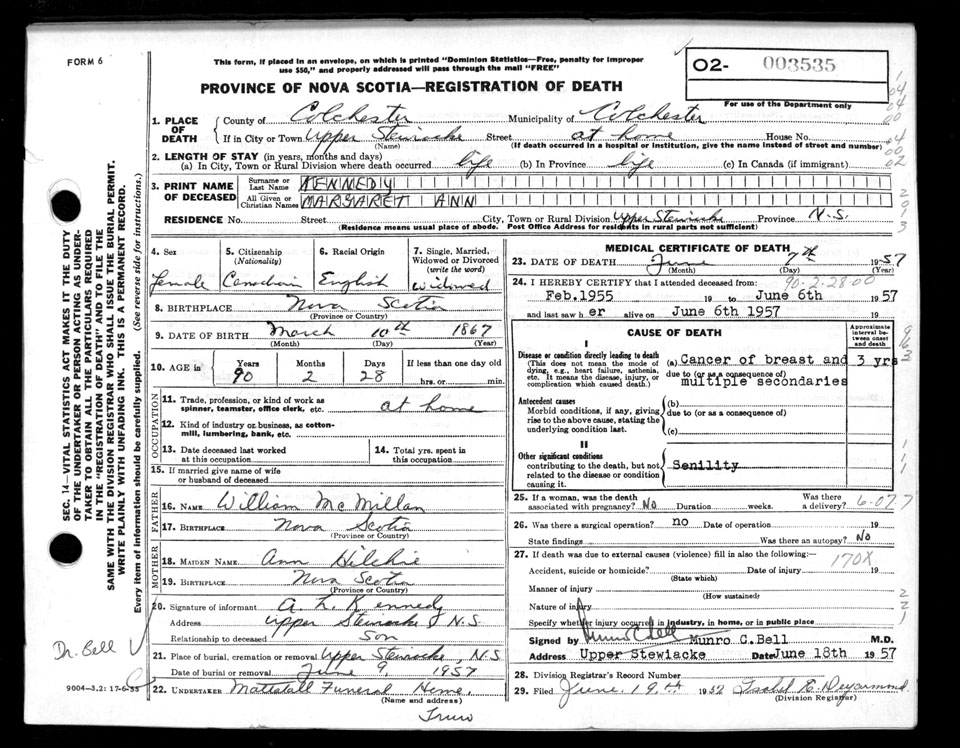 FORM 6
This form, if placed in an envelope, on which is printed "Dominion Statistics—Free, penalty for improper
use $50," and properly addressed will pass through the mail "FREE"
O2- 003535
For use of the Department only
PROVINCE OF NOVA SCOTIA—REGISTRATION OF DEATH
1. PLACE OF DEATH
County of Colchester Municipality of Colchester
If in City or Town Upper Stewiacke Street at home House No.
(Name) (If death occurred in a hospital or institution, give the name instead of street and number)
2. LENGTH OF STAY (in years, months and days)
(a) In City, Town or Rural Division where death occurred life (b) In Province life (c) In Canada (if immigrant)
3. PRINT NAME OF DECEASED
Surname or Last Name KENNEDY
All Given or Christian Names MARGARET ANN
RESIDENCE No. Street City, Town or Rural Division Upper Stewiacke Province N.S.
(Residence means usual place of abode. Post Office Address for residents in rural parts not sufficient)
4. Sex
Female
5. Citizenship
(Nationality)
Canadian
6. Racial Origin
English
7. Single, Married,
Widowed or Divorced
(write the word)
widowed
8. BIRTHPLACE Nova Scotia
(Province or Country)
9. DATE OF BIRTH March 10th 1867
(Month) (Day) (Year)
10. AGE in
Years Months Days If less than one day old
90 2 28 hrs. or min.
OCCUPATION
11. Trade, profession, or kind of work as
spinner, teamster, office clerk, etc. at home
12. Kind of industry or business, as cotton-
mill, lumbering, bank, etc.
13. Date deceased last worked
at this occupation
14. Total yrs. spent in
this occupation
15. If married give name of wife
or husband of deceased
FATHER
16. NAME William McMillan
17. BIRTHPLACE Nova Scotia
(Province or Country)
MOTHER
18. MAIDEN NAME Ann Hilchie
19. BIRTHPLACE Nova Scotia
(Province or Country)
20. Signature of informant A. L. Kennedy
Address Upper Stewiacke N.S.
Relationship to deceased Son
21. Place of burial, cremation or removal Upper Stewiacke, N.S.
Date of burial or removal June 9, 1957
22. UNDERTAKER Mattatall Funeral Home,
(Name and address)
Truro
MEDICAL CERTIFICATE OF DEATH
23. DATE OF DEATH June 7th 1957
(Month) (Day) (Year)
90-2-28-00
24. I HEREBY CERTIFY that I attended deceased from:
Feb.1955 19 to June 6th 1957
and last saw h er alive on June 6th 1957 19
CAUSE OF DEATH
Approximate
interval be-
tween onset
and death
I
Disease or condition directly leading to death
(This does not mean the mode of
dying, e.g., heart failure, asthenia,
etc. It means the disease, injury, or
complication which caused death.)
(a) Cancer of breast and 3 yrs
due to (or as a consequence of)
multiple secondaries
Antecedent causes
Morbid conditions, if any, giving
rise to above cause, stating the
underlying condition last.
(b)
due to (or as a consequence of)
(c)
II
Other significant conditions
contributing to the death, but not
related to the disease or condition
causing it.
Senility
25. If a woman, was the death
associated with pregnancy? No Duration weeks.
Was there
a delivery?
6-077
26. Was there a surgical operation? no Date of operation 19
State findings Was there an autopsy? No
27. If death was due to external causes (violence) fill in also the following:—
170X
Accident, suicide or homicide? Date of injury 19
(State which)
Manner of injury
(How sustained)
Nature of injury
Specify whether injury occurred in industry, in home, or in public place
Signed by Munro C.Bell M.D.
Address Upper Stewiacke Date June 18th 1957
28. Division Registrar's Record Number
29. Filed June 19th 1952
(Division Registrar)
SEC. 14—VITAL STATISTICS ACT MAKES IT THE DUTY
OF THE UNDERTAKER OR PERSON ACTING AS UNDER-
TAKER TO OBTAIN ALL THE PARTICULARS REQUIRED
IN THE "REGISTRATION OF DEATH" AND TO FILE THE
SAME WITH THE DIVISION REGISTRAR WHO SHALL ISSUE THE BURIAL PERMIT.
WRITE PLAINLY WITH UNFADING INK. THIS IS A PERMANENT RECORD.
Every item of information should be carefully supplied. (See reverse side for instructions.)
Dr. Bell
9004—3,2: 17-6-55